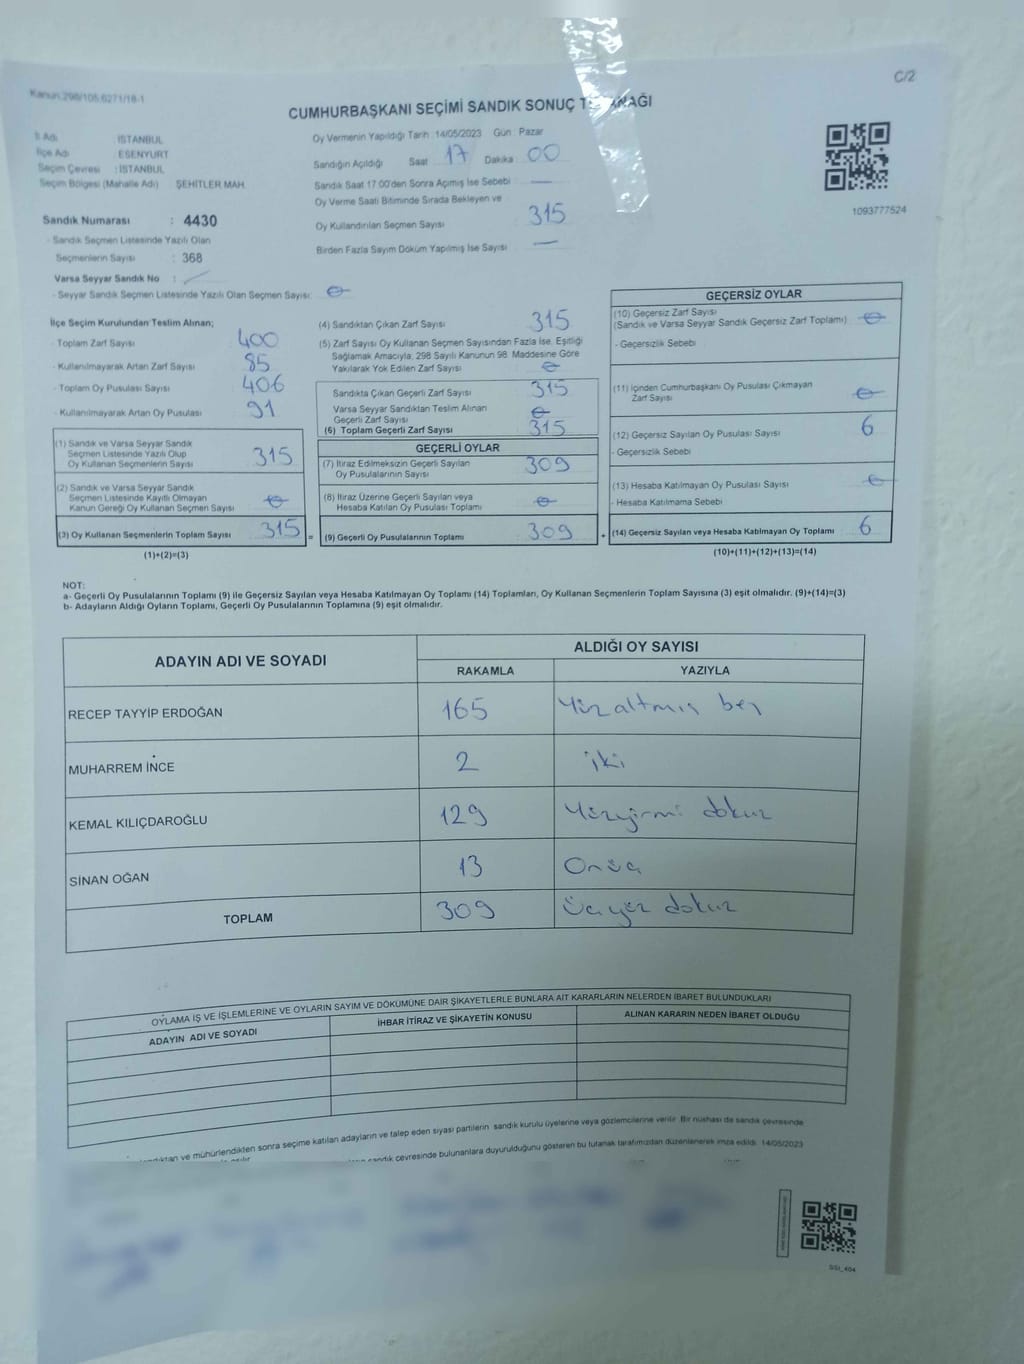 C/2
Kanun:298/105,6271/18-1
CUMHURBAŞKANI SEÇİMİ SANDIK SONUÇ T NAĞI
İl Adı : İSTANBUL
İlçe Adı : ESENYURT
Seçim Çevresi : İSTANBUL
Seçim Bölgesi (Mahalle Adı) ŞEHİTLER MAH.
Oy Vermenin Yapıldığı Tarih : 14/05/2023 Gün : Pazar
Sandığın Açıldığı Saat 17 Dakika : 00
Sandık Saat 17.00'den Sonra Açımış İse Sebebi : —
Oy Verme Saati Bitiminde Sırada Bekleyen ve
Oy Kullandırılan Seçmen Sayısı 315
Birden Fazla Sayım Döküm Yapılmış İse Sayısı —
1093777524
Sandık Numarası : 4430
- Sandık Seçmen Listesinde Yazılı Olan
Seçmenlerin Sayısı : 368
Varsa Seyyar Sandık No :
- Seyyar Sandık Seçmen Listesinde Yazılı Olan Seçmen Sayısı: 0
İlçe Seçim Kurulundan Teslim Alınan;
- Toplam Zarf Sayısı 400
- Kullanılmayarak Artan Zarf Sayısı 85
- Toplam Oy Pusulası Sayısı 406
- Kullanılmayarak Artan Oy Pusulası 91
(1) Sandık ve Varsa Seyyar Sandık
Seçmen Listesinde Yazılı Olup
Oy Kullanan Seçmenlerin Sayısı 315
(2) Sandık ve Varsa Seyyar Sandık
Seçmen Listesinde Kayıtlı Olmayan
Kanun Gereği Oy Kullanan Seçmen Sayısı 0
(3) Oy Kullanan Seçmenlerin Toplam Sayısı 315 =
(1)+(2)=(3)
(4) Sandıktan Çıkan Zarf Sayısı 315
(5) Zarf Sayısı Oy Kullanan Seçmen Sayısından Fazla İse, Eşitliği
Sağlamak Amacıyla, 298 Sayılı Kanunun 98. Maddesine Göre
Yakılarak Yok Edilen Zarf Sayısı 0
Sandıkta Çıkan Geçerli Zarf Sayısı 315
Varsa Seyyar Sandıktan Teslim Alınan
Geçerli Zarf Sayısı 0
(6) Toplam Geçerli Zarf Sayısı 315
GEÇERLİ OYLAR
(7) İtiraz Edilmeksizin Geçerli Sayılan
Oy Pusulalarının Sayısı 309
(8) İtiraz Üzerine Geçerli Sayılan veya
Hesaba Katılan Oy Pusulası Toplamı 0
(9) Geçerli Oy Pusulalarının Toplamı 309 +
GEÇERSİZ OYLAR
(10) Geçersiz Zarf Sayısı
(Sandık ve Varsa Seyyar Sandık Geçersiz Zarf Toplamı) 0
- Geçersizlik Sebebi
(11) İçinden Cumhurbaşkanı Oy Pusulası Çıkmayan
Zarf Sayısı 0
(12) Geçersiz Sayılan Oy Pusulası Sayısı 6
- Geçersizlik Sebebi
(13) Hesaba Katılmayan Oy Pusulası Sayısı 0
- Hesaba Katılmama Sebebi
(14) Geçersiz Sayılan veya Hesaba Katılmayan Oy Toplamı 6
(10)+(11)+(12)+(13)=(14)
NOT:
a- Geçerli Oy Pusulalarının Toplamı (9) ile Geçersiz Sayılan veya Hesaba Katılmayan Oy Toplamı (14) Toplamları, Oy Kullanan Seçmenlerin Toplam Sayısına (3) eşit olmalıdır. (9)+(14)=(3)
b- Adayların Aldığı Oyların Toplamı, Geçerli Oy Pusulalarının Toplamına (9) eşit olmalıdır.
ADAYIN ADI VE SOYADI
ALDIĞI OY SAYISI
RAKAMLA YAZIYLA
RECEP TAYYİP ERDOĞAN 165 Yüzaltmış beş
MUHARREM İNCE 2 iki
KEMAL KILIÇDAROĞLU 129 Yüzyirmi dokuz
SİNAN OĞAN 13 Onüç
TOPLAM 309 Üçyüz dokuz
OYLAMA İŞ VE İŞLEMLERİNE VE OYLARIN SAYIM VE DÖKÜMÜNE DAİR ŞİKAYETLERLE BUNLARA AİT KARARLARIN NELERDEN İBARET BULUNDUKLARI
ADAYIN ADI VE SOYADI İHBAR İTİRAZ VE ŞİKAYETİN KONUSU ALINAN KARARIN NEDEN İBARET OLDUĞU
ve mühürlendikten sonra seçime katılan adayların ve talep eden siyasi partilerin sandık kurulu üyelerine veya gözlemcilerine verilir. Bir nüshası da sandık çevresinde
sandık çevresinde bulunanlara duyurulduğunu gösteren bu tutanak tarafımızdan düzenlenerek imza edildi. 14/05/2023
SSI_404